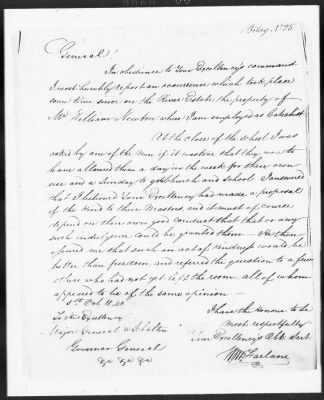 General!
In obedience to Your Excellency's command
I most humbly report an occurrence which took place
some time since on the River Estate the property of
Mr William Newton where I am employed as Catechist
At the close of the School I was
asked by one of the Men if it was true that they were to
have allowed them a day in the week for their own
use and a Sunday to go to Church and school. I answered
that I believed Your Excellency had made a proposal
of the kind to their Masters and it must of course
depend on their own good conduct that that or any
such indulgence could be granted them - He then
assured me that such an act of Kindness would be
better than freedom and referred the question to a few
others who had not yet left the room all of whom
appeared to be of the same opinion -
I have the Honour to be
most respectfully
Your Excellency's Obt Servt
Farlane
5th Oct
To His Excellency
Major General
Governor General
&c &c &c